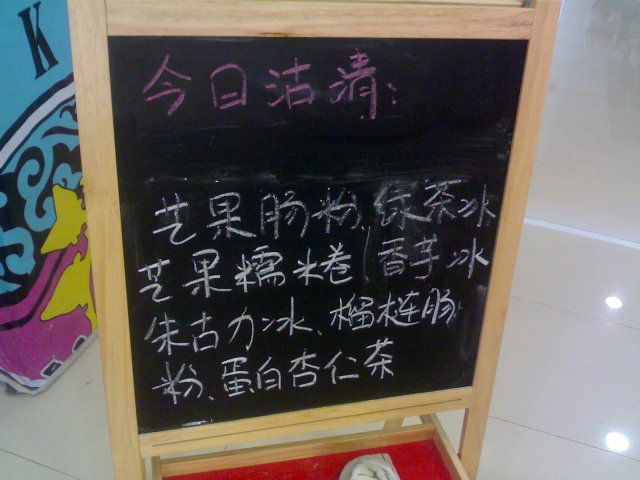 K
今日沽清:
芒果肠粉、绿茶冰
芒果糯米卷 香芋冰
朱古力冰、榴梿肠
粉、蛋白杏仁茶